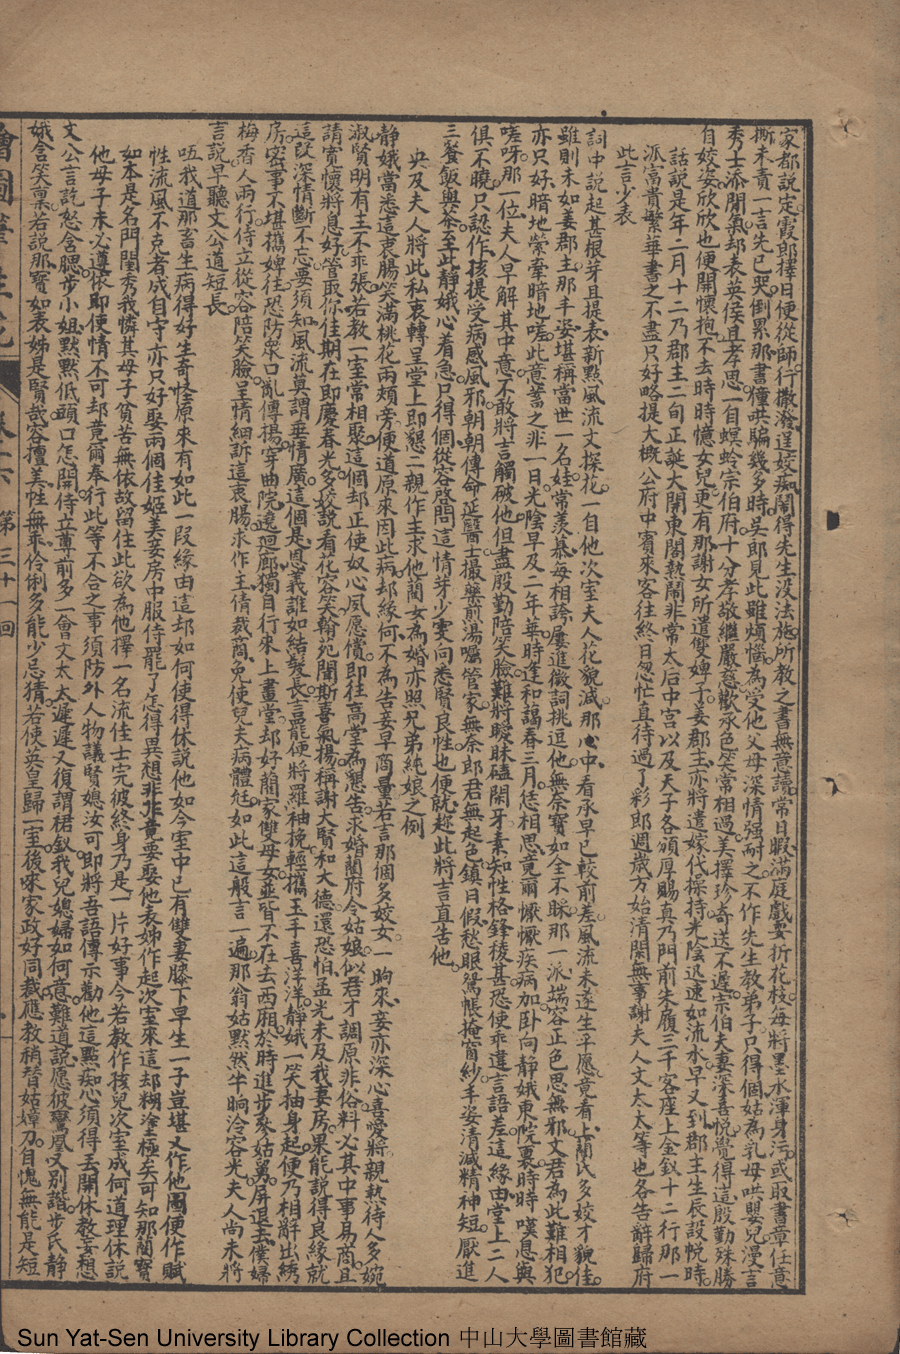 家都說定霞郎擇日便從師行撒潑逞姣痴鬧得先生沒法施所教之書無意讀常日暇滿庭戲耍折花枝每將墨水渾身污或取書章任意
撕未責一言先已哭倒累那書童哄騙幾多時吳郎見此雖煩惱為受他父母深情強耐之不作先生教弟子只得個姑為乳母哄嬰兒漫言
秀士添閒氣却表英侯且孝思一自螟蛉宗伯府十分孝敬繼嚴慈歡承色笑常相過美擇珍奇送不遲宗伯夫妻深喜悅覺得這殷勤殊勝
自姣姿欣欣也便開懷抱不去時時憶女兒更有那謝女所遣雙婢子姜郡主亦將遣嫁代操持光陰迅速如流水早又到郡主生辰設帨時
話說是年二月十二乃郡主二旬正誕大開東閣熱鬧非常太后中宮以及天子各頒厚賜真乃門前朱履三千客座上金釵十二行那一
派富貴繁華書之不盡只好略提大概公府中賓來客往終日怱忙直待過了彩郎週歲方始清閑無事謝夫人文太太等也各告辭歸府
此言少表
詞中說起甚根芽且提表新點風流文探花一自他次室夫人花貌減那心中看承早已較前差風流未遂生平愿竟看上蘭氏多姣才貌佳
雖則未如姜郡主那丰姿堪稱當世一名娃常羨恭每相誇屢進微詞挑逗他無奈寶如全不睬那一派端容正色思無邪文君為此難相犯
亦只好暗地縈牽暗地嗟此意蓄之非一日光陰早及二年華時逢和藹春三月恁相思竟爾懨懨疾病加卧向靜娥東院裏時時嘆息與
嗟呀那一位夫人早解其中意不敢將言觸破他但盡殷勤陪笑臉難將曖昧磕閑牙素知性格鋒稜甚恐使乖違言語差這緣由堂上二人
俱不曉只認作孩提受病感風邪朝朝傳命延醫士撮藥煎湯囑管家無奈郎君無起色鎮日假愁眼鴛帳掩窗紗丰姿清減精神短厭進
三餐飯與茶至此靜娥心着急只得個從容啓問這情芽少雯向悉賢良性也便就趂此將言直告他
央及夫人將此私衷轉呈堂上即懇二親作主求他蘭女為婚亦照兄弟純娘之例
靜娥當悉這衷腸笑滿桃花兩頰旁便道原來因此病却緣何不為告妾早商量若言那個多姣女一晌來妾亦深心喜愛將親執侍人多婉
淑賢明有主不乖張若教一室常相聚這個却正使奴心夙愿償即往高堂為懇告求婚蘭府令姑娘似君才調原非俗料必其中事易商且
請寬懷將息好管取你佳期在即慶春光多姣說看花容笑翰苑聞斯喜氣揚稱謝大賢和大德還恐怕孟光未及我妻房果能說得良緣就
這段深情斷不忘要須知風流莫謂垂情廣這個是恩義誰如結髮長言罷便將羅袖挽輕攜玉手喜洋洋靜娥一笑抽身起便乃相辭出綉
房密事不堪攜婢往恐防眾口亂傳揚穿曲院遶迴廊獨自行來上畫堂却好蘭家雙母女並皆不在去西廂於時進步參姑舅屏退去僕婦
梅香人兩行侍立從容陪笑臉呈情細訴這衷腸求作主倩裁商免使兒夫病體尪如此這般言一遍那翁姑默然半晌冷容光夫人尚未將
言說早聽文公道短長
呸我道那畜生病得好生奇怪原來有如此一段緣由這却如何使得休說他如今室中已有雙妻膝下早生一子豈堪又作他圖便作賦
性流風不克老成自守亦只好娶兩個佳姬美妾房中服侍罷了怎得異想非非竟要娶他表姊作起次室來這却糊塗極矣可知那蘭寶
如本是名門閨秀我憐其母子貧苦無依故留住此欲為他擇一名流佳士完彼終身乃是一片好事今若教作孩兒次室成何道理休說
他母子未必遵依即使情不可却竟爾奉行此等不合之事須防外人物議賢媳汝可即將吾語傳示勸他這點痴心須得丟開休教妄想
文公言訖怒含腮步小姐默默低頭口怎開侍立尊前多一會文太太遲遲又復謂裙釵我兒媳婦如何意難道說愿彼鸞凰又別諧步氏靜
娥含笑稟若說那寶如表姊是賢哉容擅美性無乖伶俐多能少忌猜若使英皇歸一室後來家政好同裁應教稍替姑嫜力自愧無能是短
繪圖筆生花 卷六 第三十一回
Sun Yat-Sen University Library Collection 中山大學圖書館藏